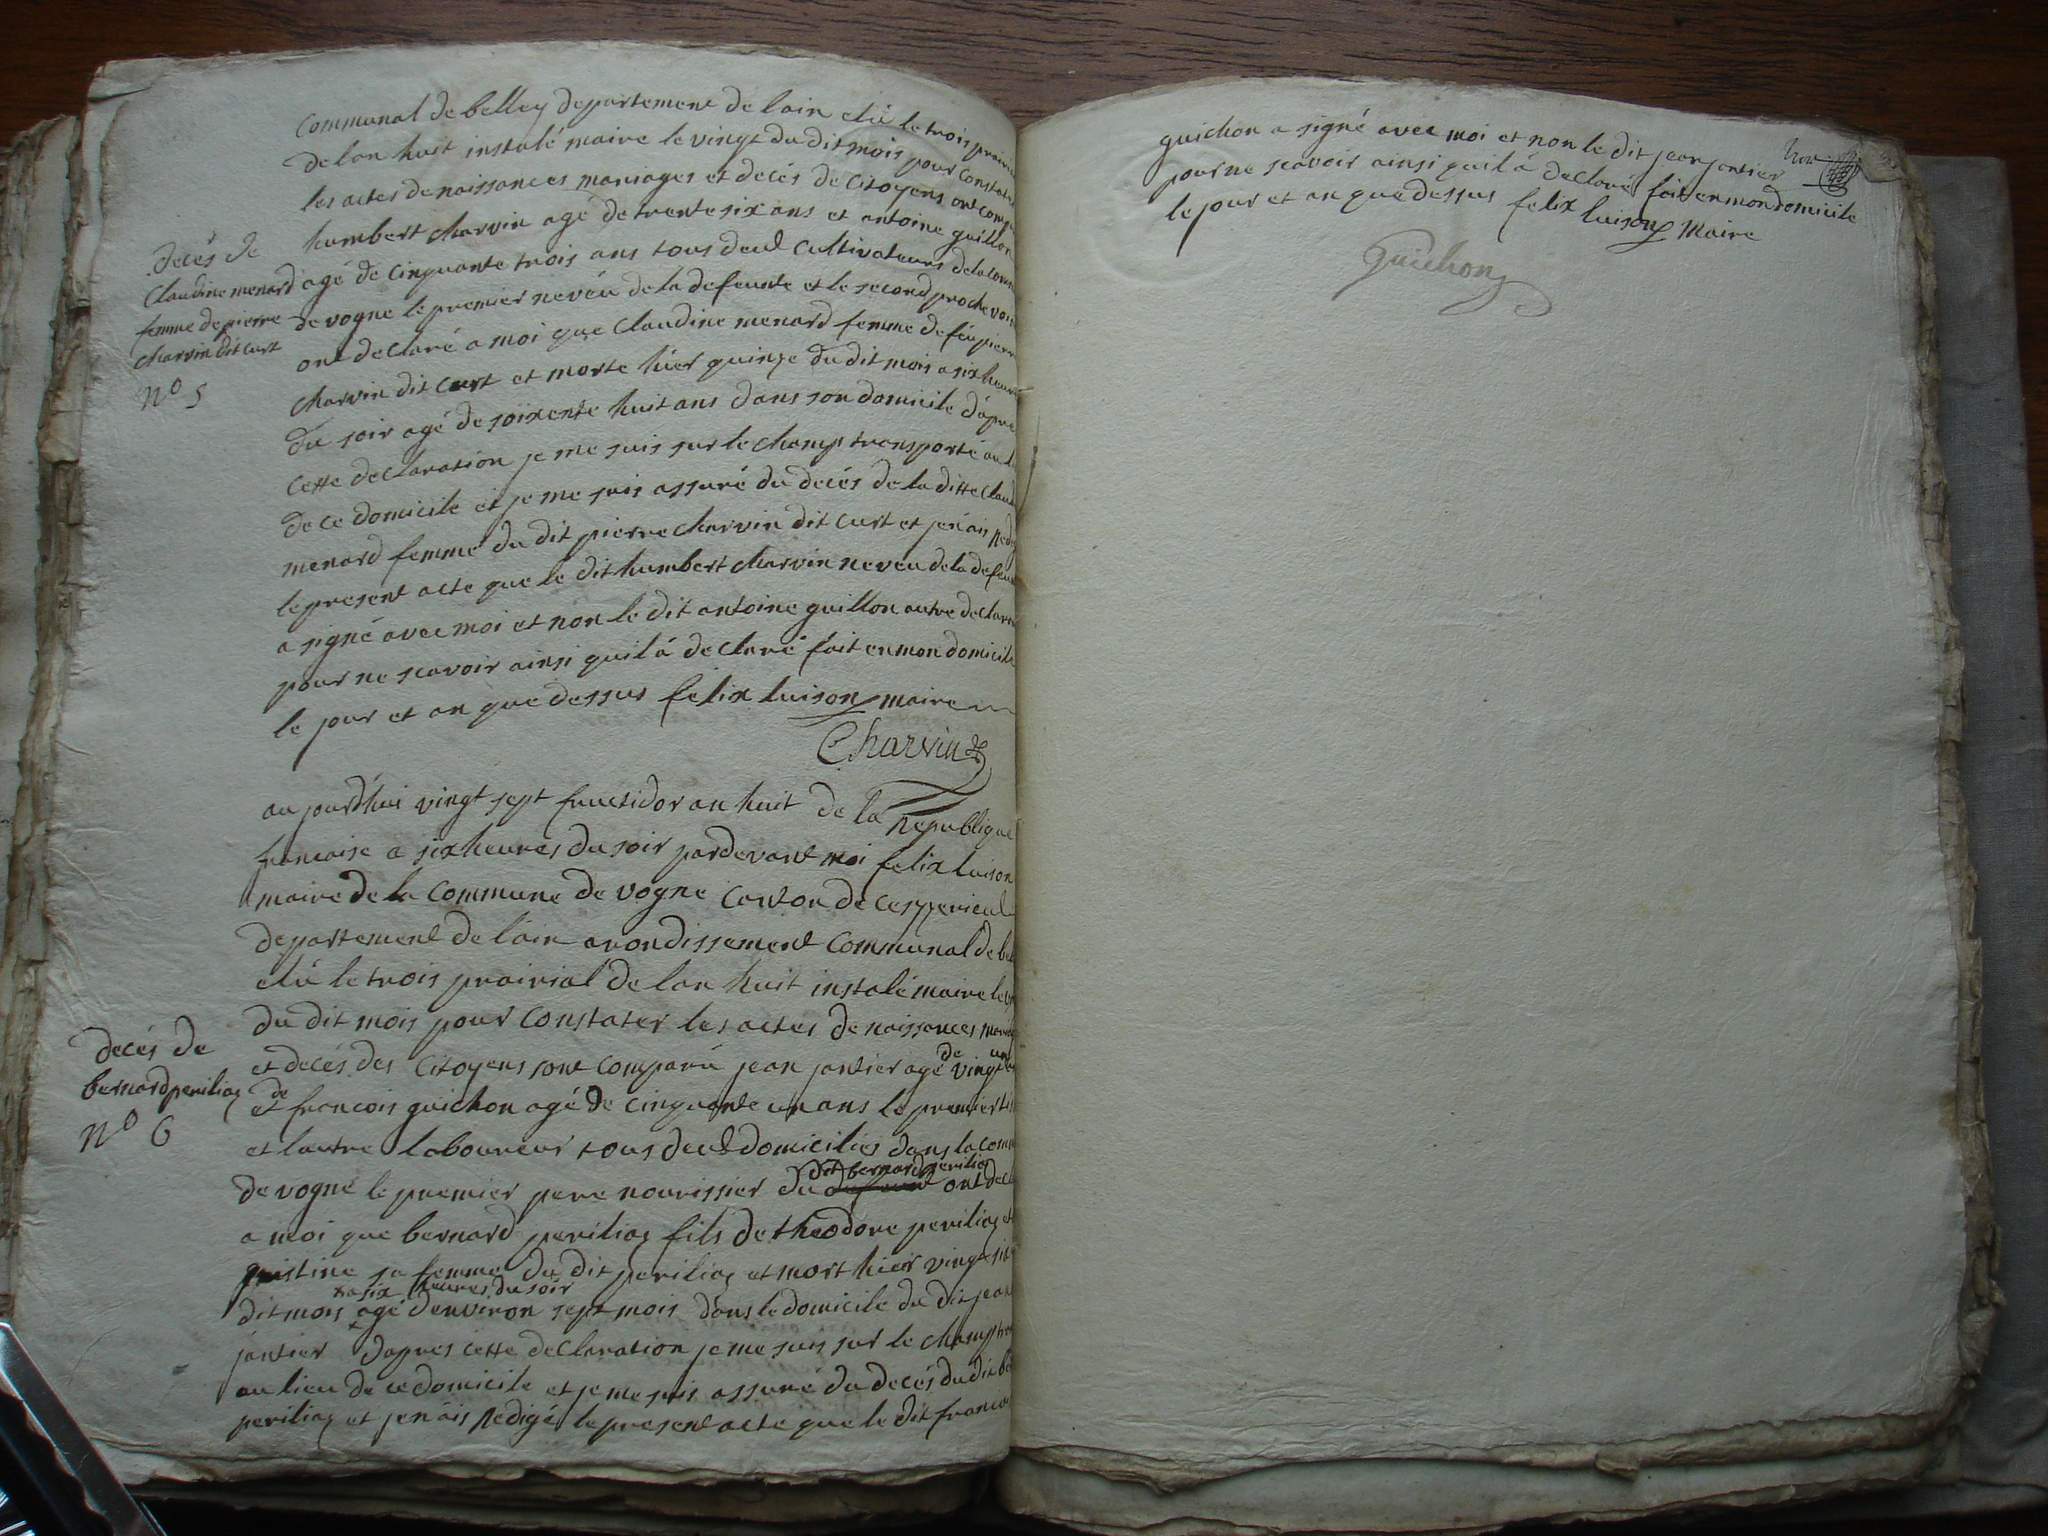 communal de belley departement de lain elú le trois prairi
de lan huit instalé maire le vingt du dit mois pour constate
les actes de naissances mariages et decés de citoyens ont comp
humbert charvin agé de trente six ans et antoine guillon
agé de cinquante trois ans tous deux cultivateurs de la com
de vogne le premier neveu de la defeunte et le second proche voi
ont declaré a moi que Claudine menard femme de feu pierre
charvin dit curt et morte hier quinze du dit mois a six heure
du soir agé de soixente huit ans dans son domicile dápre
cette declaration je me suis sur le champ transporté au l
de ce domicile et je me suis assuré du decés de la ditte claud
menard femme du dit pierre charvin dit curt et jenais redi
le present acte que le dit humbert charvin neveu de la defeu
a signé avec moi et non le dit antoine guillon autre declara
pour ne scavoir ainsi quil á declaré fait en mon domicile
le jour et an que dessus felix luison maire
Charvin
decés de
Claudine menard
femme de pierre
charvin dit curt
No 5
aujourdhui vingt sept fructidor an huit de la republique
francaise a six heures du soir pardevant moi felix luison
maire de la commune de vogne canton de
departement de lain arondissement communal de bel
elú le trois prairial de lan huit instalé maire le
du dit mois pour constater les actes de naissances mari
et decés des citoyens sont comparú jean jantier agé de vingt un
et francois guichon agé de cinquante un ans le premier
et lautre laboureur tous deux domiciliés dans la com
de vogne le premier pere nourissier du dit bernard perilia ont decl
a moi que bernard periliaz fils de theodore periliaz et
justine sa femme du dit periliaz et mort hier vingt six
dit mois a six heures du soir agé denviron sept mois dans le domicile du dit jean
jantier dapres cette declaration je me suis sur le champ tra
au lieu de ce domicile et je me suis assuré du decés du dit be
periliaz et jenáis redigé le present acte que le dit franco
decés de
bernard periliaz
No 6
guichon a signé avec moi et non le dit jean jantier
pour ne scavoir ainsi quil á declaré fait en mon domicile
le jour et an que dessus felix luison maire
guichon